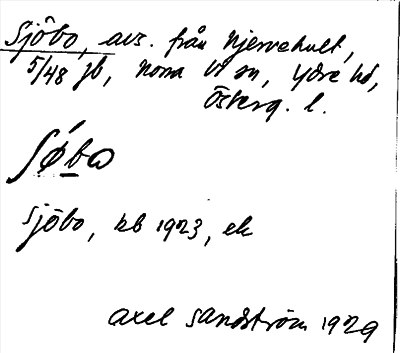 Sjöbo, avs. från Njervehult,
5/48 jb, Norra Vi sn, Ydre hd,
Österg. l.
Sjöbo, kb 1923, ek
Axel Sandström 1929